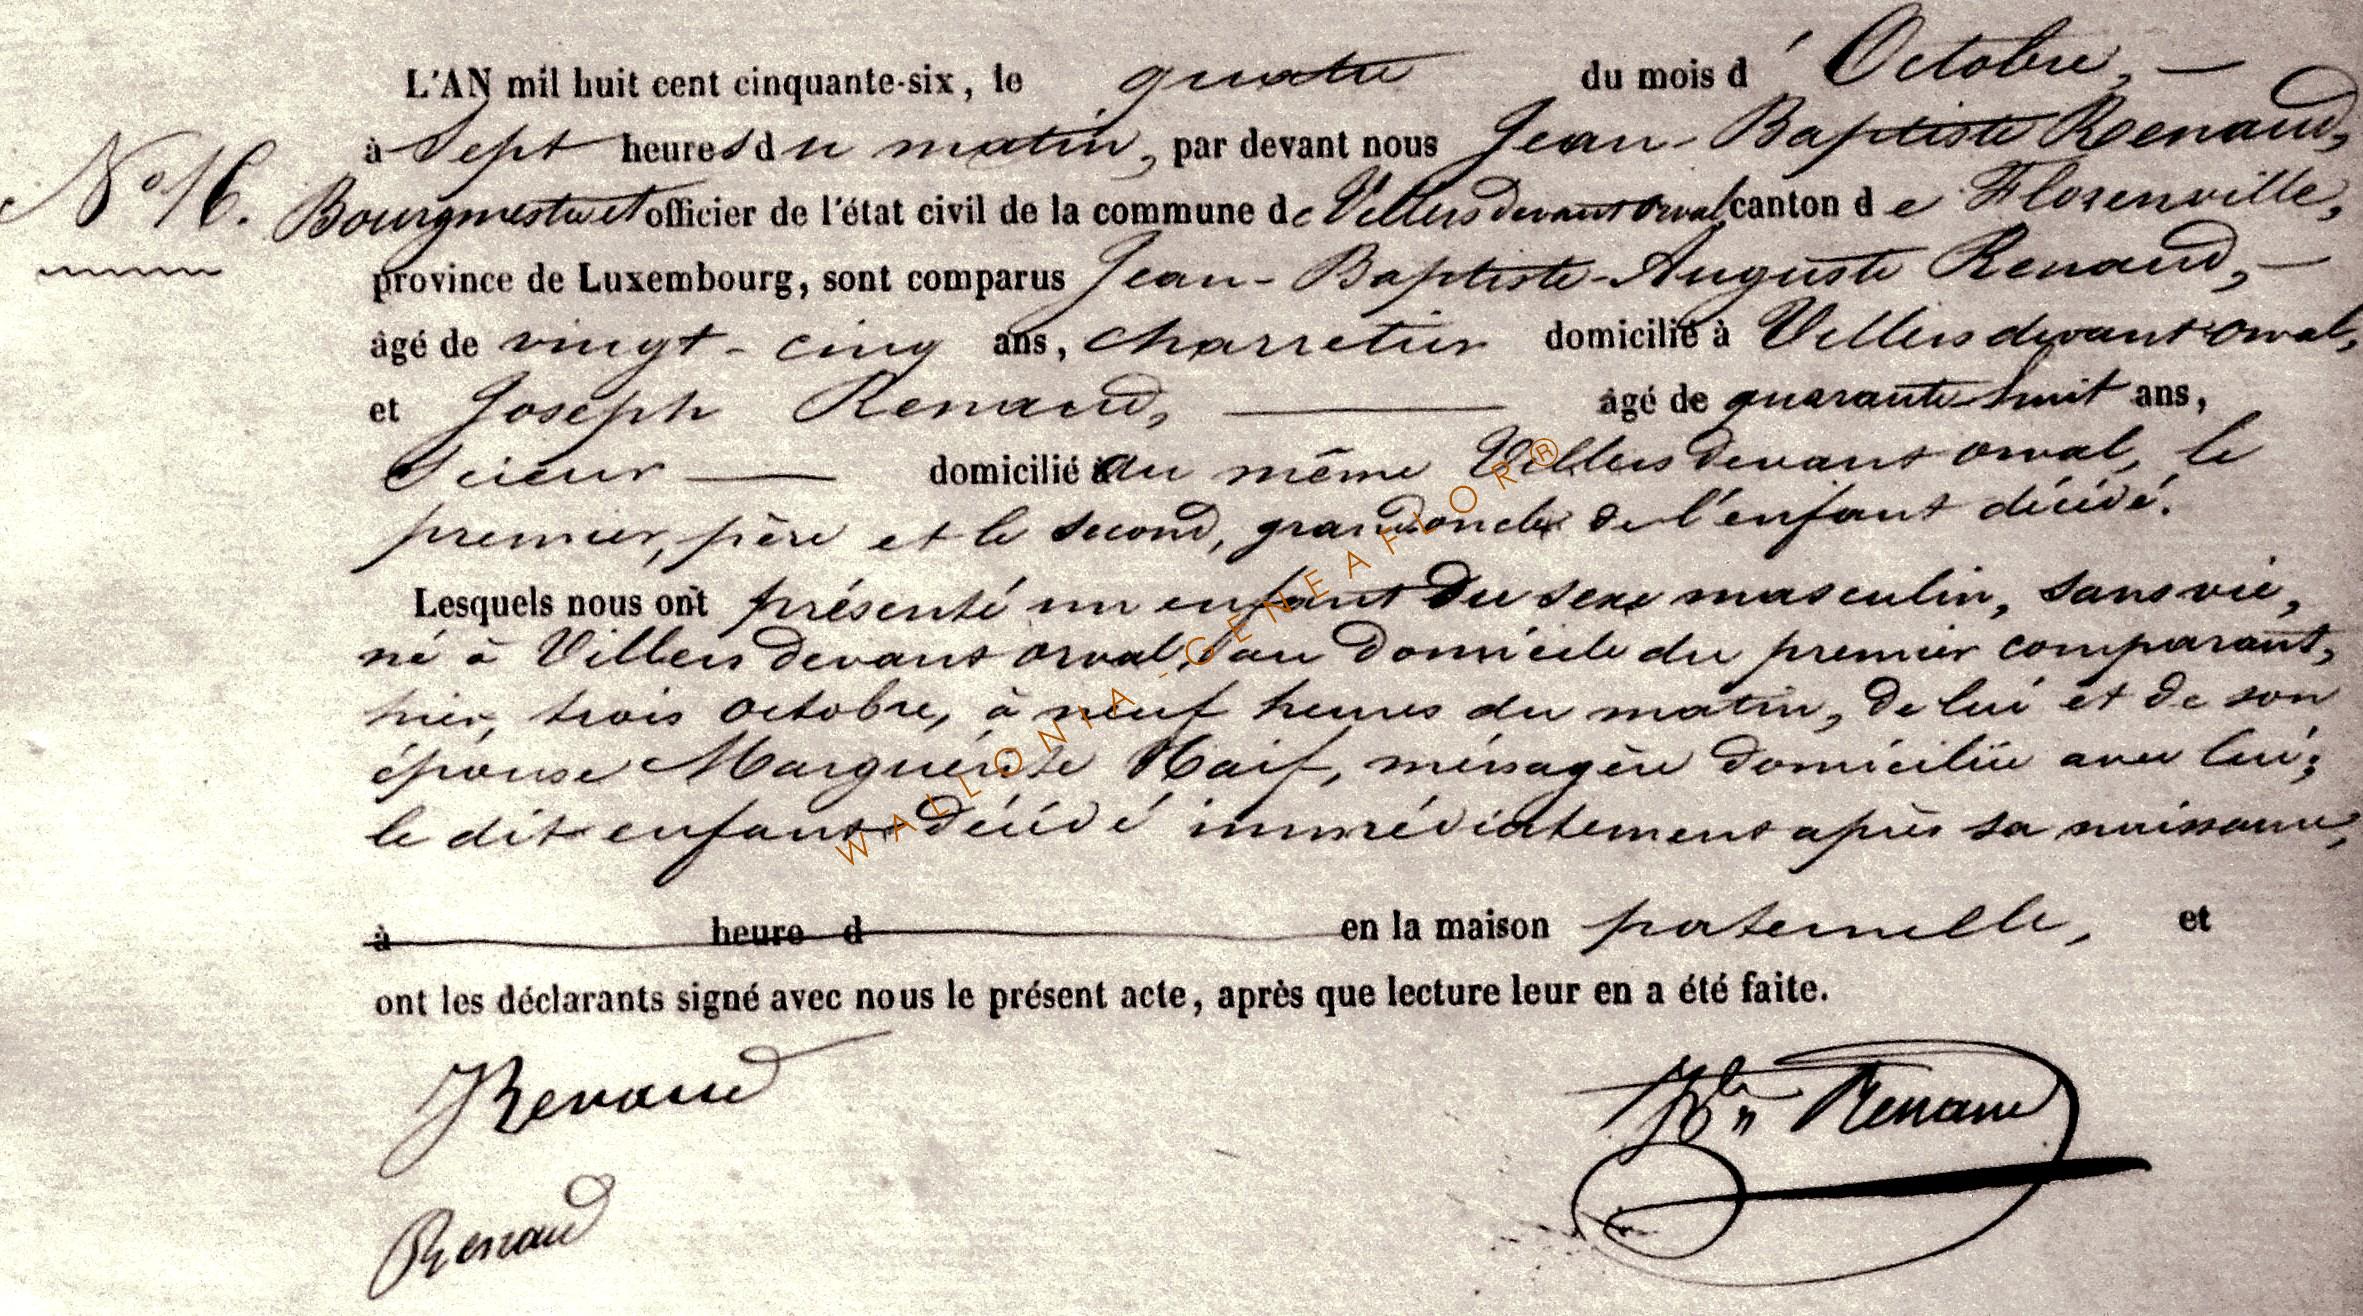 L'AN mil huit cent cinquante-six, le quatre du mois d'Octobre, —
à Sept heures du matin, par devant nous Jean-Baptiste Renaud,
N° 16. Bourgmestre et officier de l'état civil de la commune de Villers devant Orval, canton de Florenville,
province de Luxembourg, sont comparus Jean-Baptiste-Auguste Renaud, —
âgé de vingt-cinq ans, charretier domicilié à Villers devant orval,
et Joseph Renaud, — âgé de quarante huit ans,
Scieur — domicilié au même Villers devant orval, le
premier, père et le second, grand oncle de l'enfant décédé.
Lesquels nous ont présenté un enfant du sexe masculin, sans vie,
né à Villers devant orval, au domicile du premier comparant,
hier, trois octobre, à neuf heures du matin, de lui et de son
épouse Marguerite Haif, ménagère domiciliée avec lui;
le dit enfant décédé immédiatement après sa naissance,
à heure d en la maison paternelle, et
ont les déclarants signé avec nous le présent acte, après que lecture leur en a été faite.
JRenaud
Jbte Renaud
Renaud
WALLONIA-GENEAFLOR®